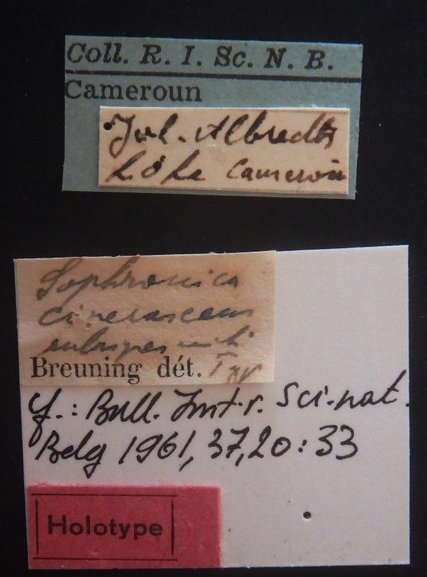 Coll. R. I. Sc. N. B.
Cameroun
Jul. Albrecht
Lolo Cameroun
Sophronica
cinerascens
rubripes mihi
Breuning dét. Typ
cf.: Bull. Inst. r. Sci. nat.
Belg 1961, 37, 20 : 33
Holotype